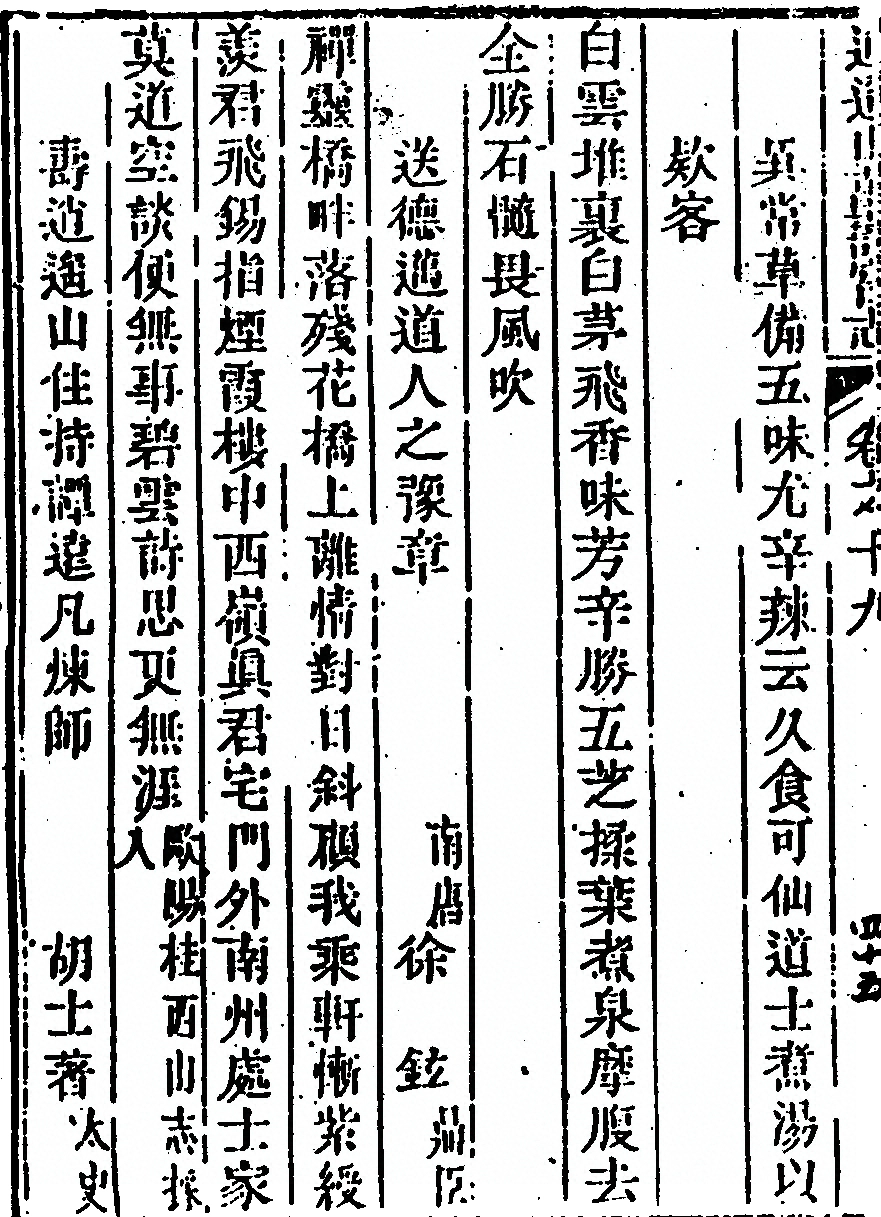 逍遙山萬壽宮志 卷之十九 四十五
異常草備五味尤辛辣云久食可仙道士煮湯以
欵客
白雲堆裏白茅飛香味芳辛勝五芝揉葉煮泉摩腹去
全勝石髓畏風吹
送德邁道人之豫章 南唐徐鉉鼎臣
禪靈橋畔落殘花橋上離情對日斜顧我乘軒慚紫綬
羨君飛錫指煙霞樓中西嶺眞君宅門外南州處士家
莫道空談便無事碧雲詩思更無涯 歐陽桂西山志採入
壽逍遙山住持譚達凡煉師 胡士著太史